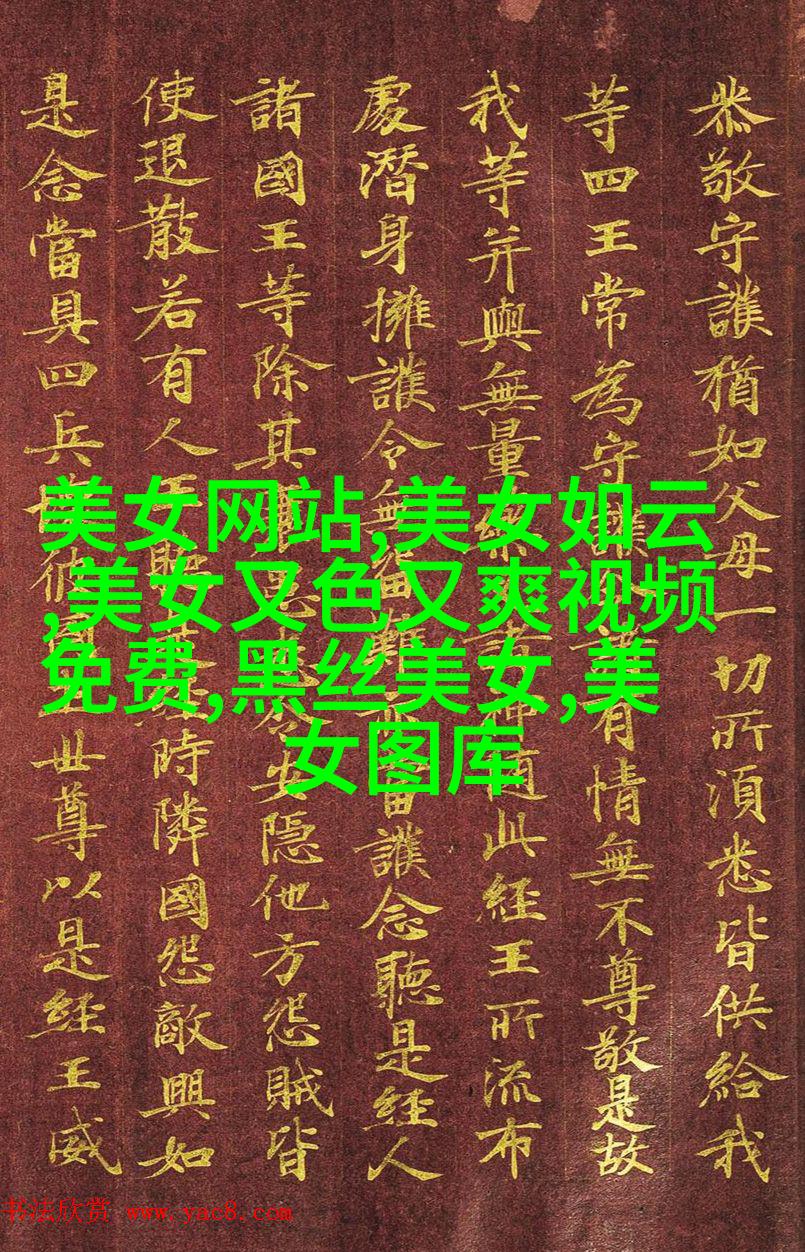 恭敬守護猶如父母一切所須悉皆供給我
等四王常為守護諸有情無不尊敬是故
我等并與無量藥諸神隨此經王所流布
處潛身擁護令無留難亦當護念聽是經人
諸國王等除其患令安隱他方怨賊皆
使退散若有人王時隣國怨敵興如
是念當具四兵彼國土世尊以是經王威
美女网站,美女如云
,美女又色又爽视频
免费,黑丝美女,美
女图库
书法欣赏 www.yac8.com